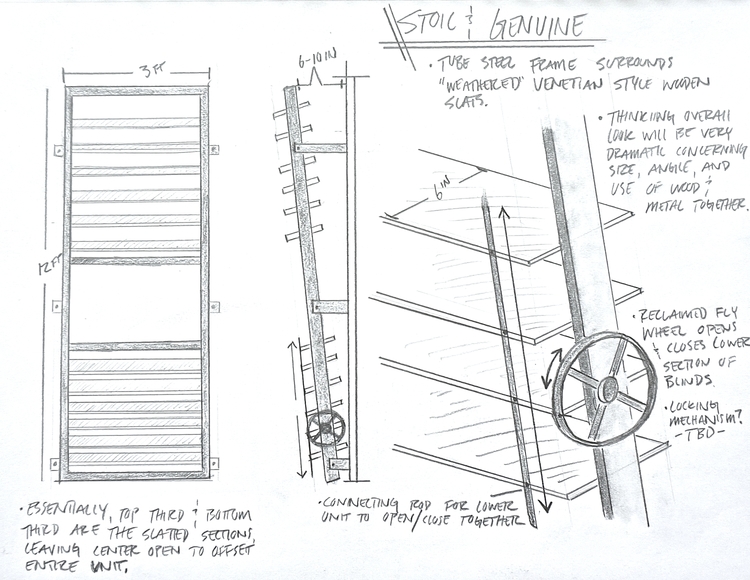 STOIC & GENUINE
• TUBE STEEL FRAME SURROUNDS
"WEATHERED" VENETIAN STYLE WOODEN
SLATS.
• THINKIING OVERALL
LOOK WILL BE VERY
DRAMATIC CONCERNING
SIZE, ANGLE, AND
USE OF WOOD &
METAL TOGETHER.
3 FT
6-10 IN
12 FT
6 IN
• RECLAIMED FLY
WHEEL OPENS
& CLOSES LOWER
SECTION OF
BLINDS.
• LOCKING
MECHANISM?
-TBD-
• ESSENTIALLY, TOP THIRD & BOTTOM
THIRD ARE THE SLATTED SECTIONS,
LEAVING CENTER OPEN TO OFFSET
ENTIRE UNIT.
• CONNECTING ROD FOR LOWER
UNIT TO OPEN/CLOSE TOGETHER